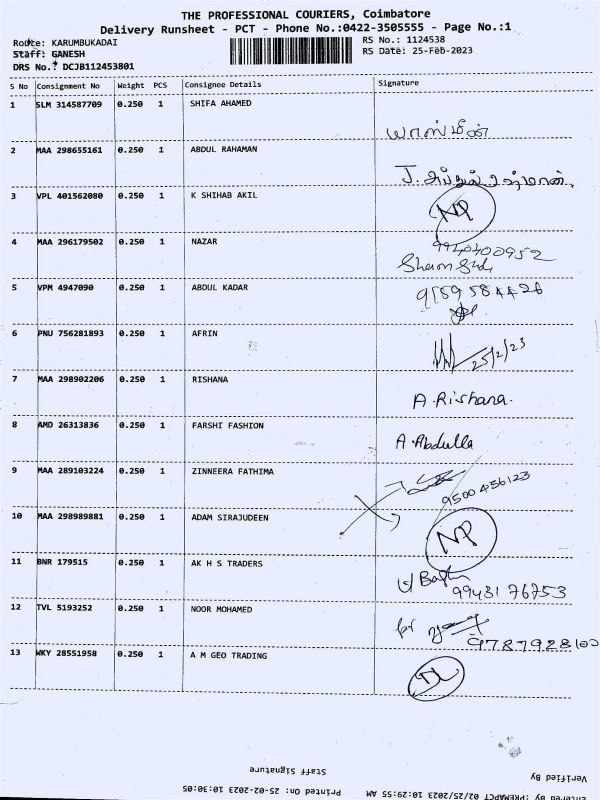 THE PROFESSIONAL COURIERS, Coimbatore
Delivery Runsheet - PCT - Phone No.:0422-3505555 - Page No.:1
Route: KARUMBUKADAI RS No.: 1124538
Staff: GANESH RS Date: 25-Feb-2023
DRS No.: DCJB112453801
S No Consignment No Weight PCS Consignee Details Signature
1 SLM 314587709 0.250 1 SHIFA AHAMED
யாஸ்மீன்
2 MAA 298655161 0.250 1 ABDUL RAHAMAN
J. அப்துல் ரஹ்மான்.
3 VPL 401562080 0.250 1 K SHIHAB AKIL
NP
4 MAA 296179502 0.250 1 NAZAR
9940400952
5 VPM 4947090 0.250 1 ABDUL KADAR
9159584426
6 PNU 756281893 0.250 1 AFRIN
25/2/23
7 MAA 298902206 0.250 1 RISHANA
A.Rishana.
8 AMD 26313836 0.250 1 FARSHI FASHION
A.Abdulla
9 MAA 289103224 0.250 1 ZINNEERA FATHIMA
9500456123
10 MAA 298989881 0.250 1 ADAM SIRAJUDEEN
NP
11 BNR 179515 0.250 1 AK H S TRADERS
9943176753
12 TVL 5193252 0.250 1 NOOR MOHAMED
for
9787928100
13 WKY 28551958 0.250 1 A M GEO TRADING
DL
Staff Signature Verified By
Printed On: 25-02-2023 10:30:05 Entered By :PREMAPCT 02/25/2023 10:29:55 AM